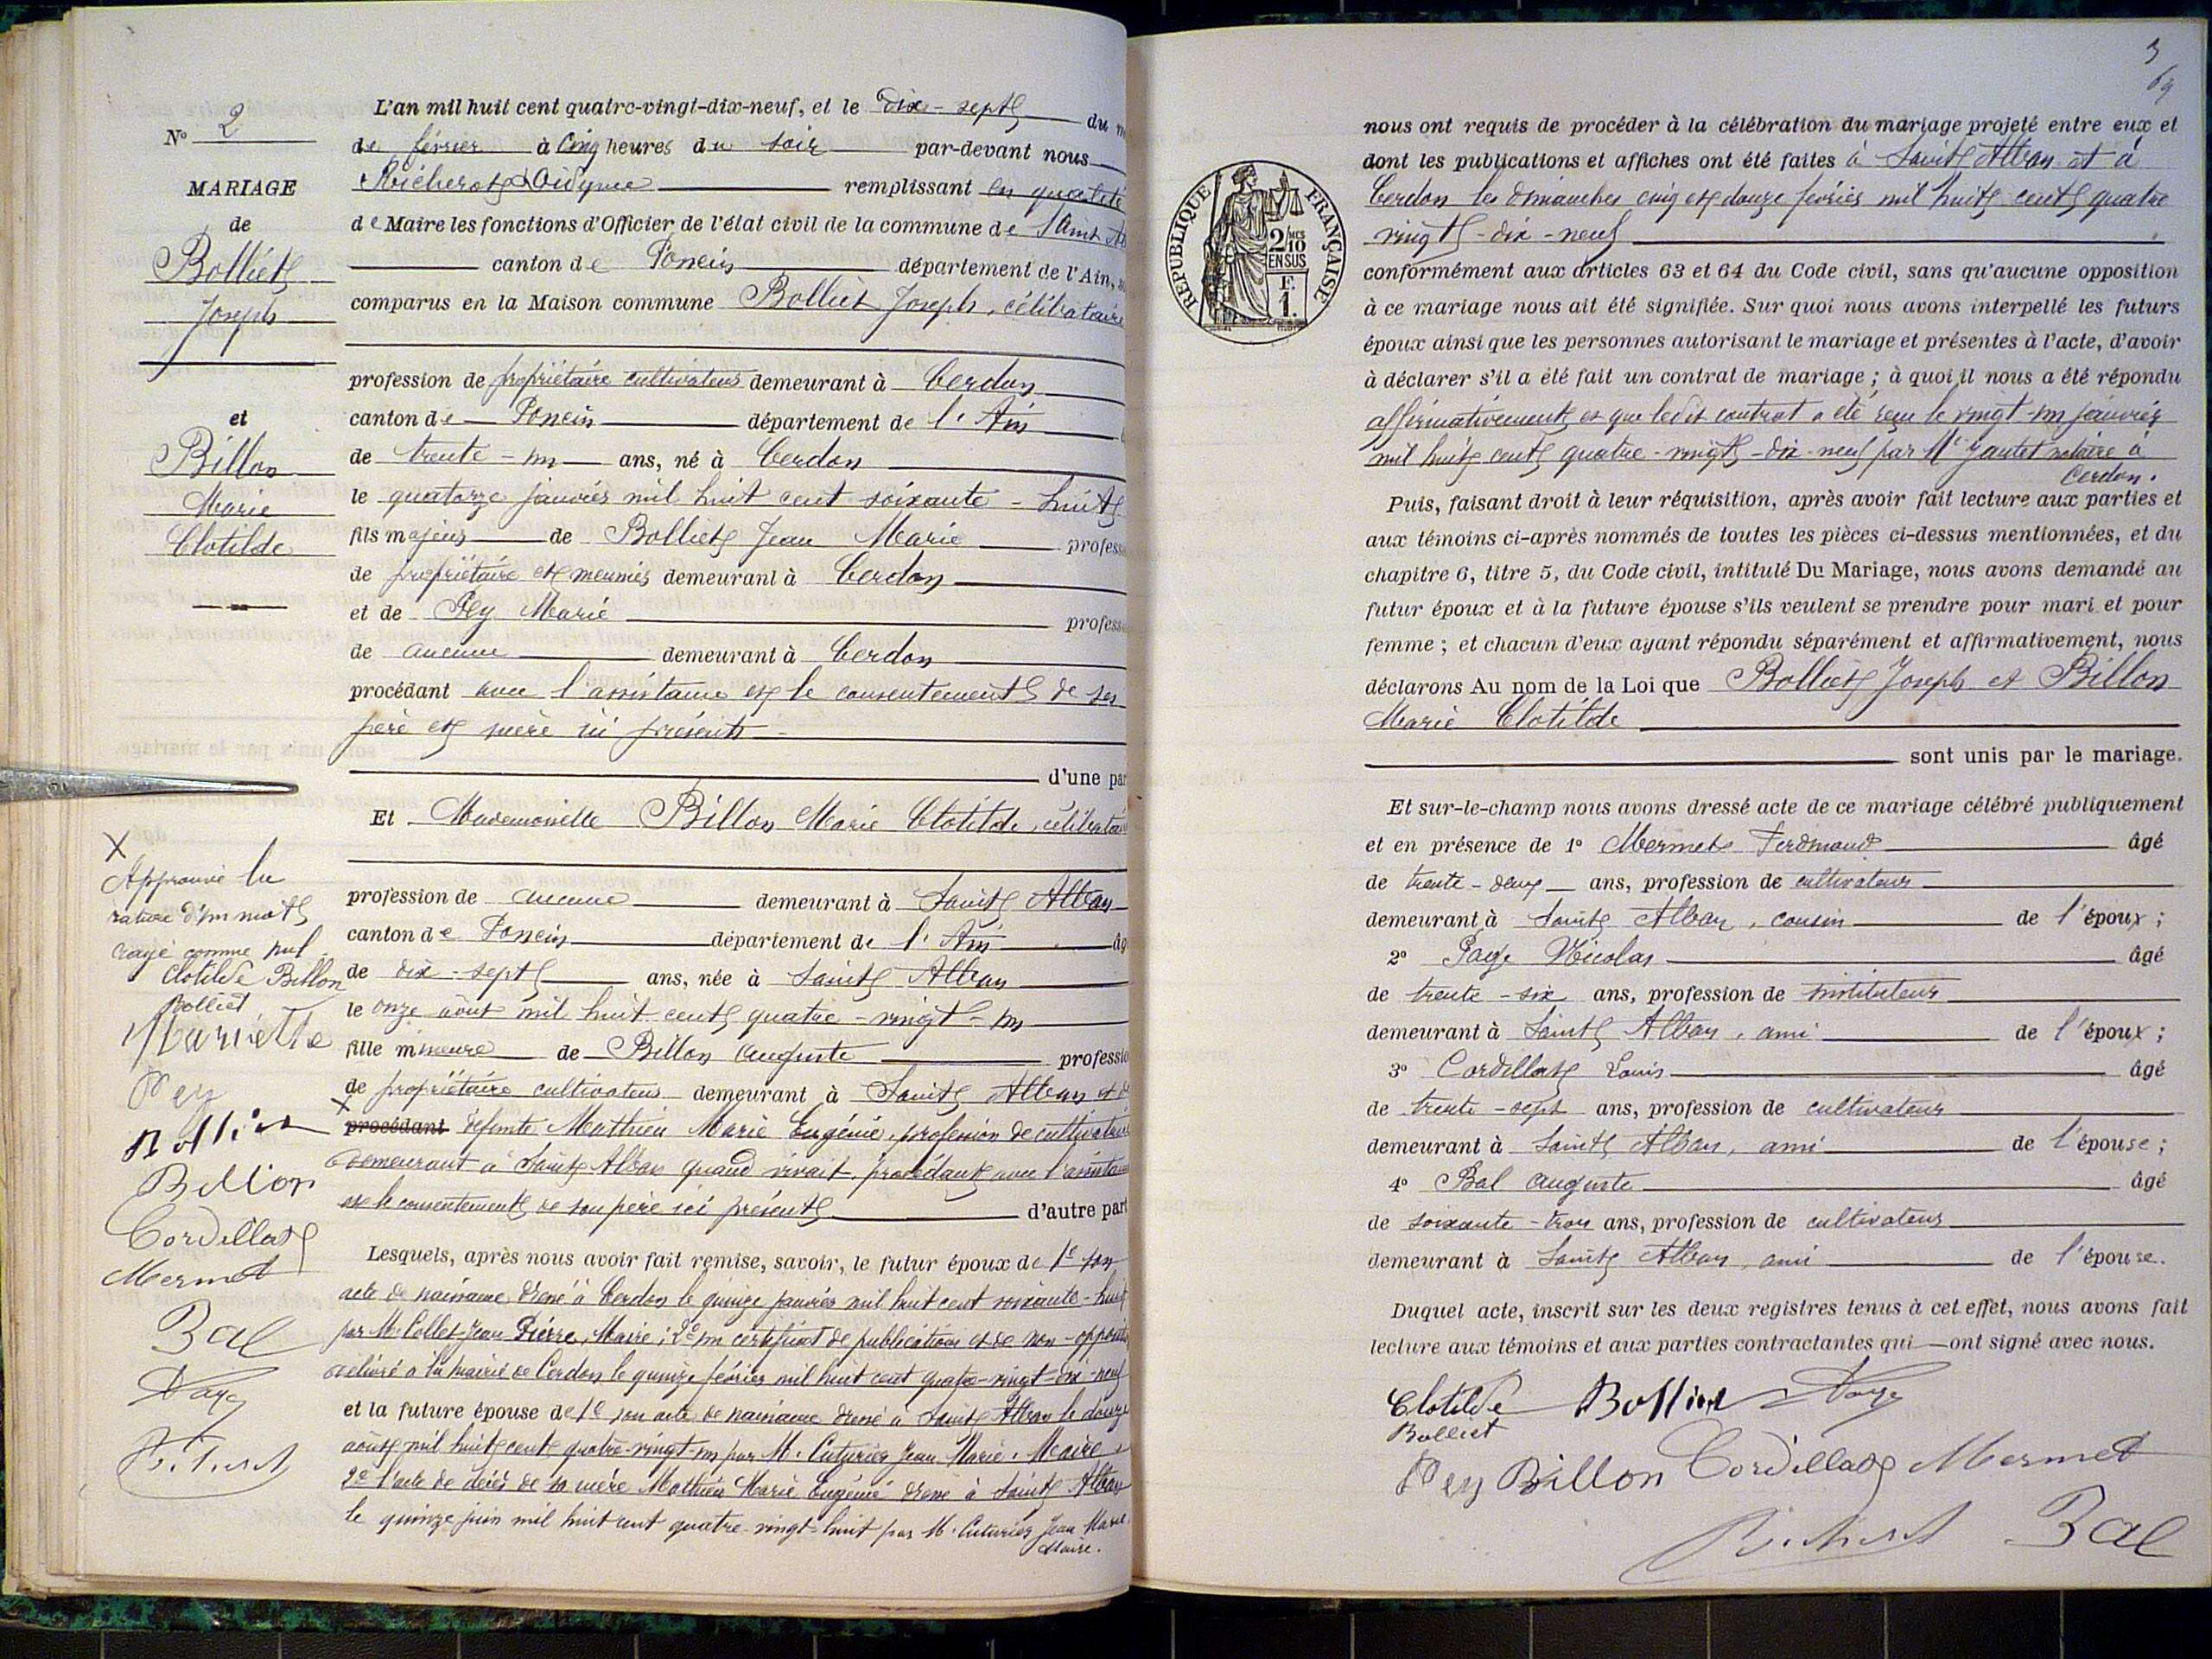 N° 2
MARIAGE
de
Bolliet
Joseph
et
Billon
Marie
Clotilde
L'an mil huit cent quatre-vingt-dix-neuf, et le dix-sept du m
de février à cinq heures du soir par-devant nous
Richerot Didyme remplissant en qualité
de Maire les fonctions d'Officier de l'état civil de la commune de Saint Al
canton de Poncin département de l'Ain,
comparus en la Maison commune Bolliet Joseph, célibataire
profession de propriétaire cultivateur demeurant à Cerdon
canton de Poncin département de l'Ain
de trente-un ans, né à Cerdon
le quatorze janvier mil huit cent soixante-huit
fils majeur de Bolliet Jean Marie profess
de propriétaire et meunier demeurant à Cerdon
et de Pey Marie profess
de aucune demeurant à Cerdon
procédant avec l'assistance et le consentement de ses
père et mère ici présents
d'une par
Et Mademoiselle Billon Marie Clotilde, célibataire
profession de aucune demeurant à Saint Alban
canton de Poncin département de l'Ain âg
de dix-sept ans, née à Saint Alban
le onze août mil huit cent quatre-vingt-un
fille mineure de Billon Auguste professio
de propriétaire cultivateur demeurant à Saint Alban et de
X procédant défunte Mathieu Marie Eugénie, profession de cultivatrice
demeurant à Saint Alban quand vivait, procédant avec l'assistance
et le consentement de son père ici présent d'autre part
Lesquels, après nous avoir fait remise, savoir, le futur époux de 1° son
acte de naissance dressé à Cerdon le quinze janvier mil huit cent soixante-huit
par M. Collet Jean Pierre, Maire; 2° un certificat de publication et de non-opposition
délivré à la mairie de Cerdon le quinze février mil huit cent quatre-vingt-dix-neuf
et la future épouse de 1° son acte de naissance dressé à Saint Alban le douze
août mil huit cent quatre-vingt-un par M. Cuturier Jean Marie, Maire,
2° l'acte de décès de sa mère Mathieu Marie Eugénie dressé à Saint Alban
le quinze juin mil huit cent quatre-vingt-huit par M. Cuturier Jean Marie
Maire.
X
Approuvé la
rature d'un mot
rayé comme nul
Clotilde Billon
Bolliet
Mariette
Pey
Bolliet
Billon
Cordillat
Mermet
Bal
3
69
RÉPUBLIQUE FRANÇAISE
2/10 MES
EN SUS
F.
1.
nous ont requis de procéder à la célébration du mariage projeté entre eux et
dont les publications et affiches ont été faites à Saint Alban et à
Cerdon les dimanches cinq et douze février mil huit cent quatre
vingt-dix-neuf
conformément aux articles 63 et 64 du Code civil, sans qu'aucune opposition
à ce mariage nous ait été signifiée. Sur quoi nous avons interpellé les futurs
époux ainsi que les personnes autorisant le mariage et présentes à l'acte, d'avoir
à déclarer s'il a été fait un contrat de mariage ; à quoi il nous a été répondu
affirmativement et que ledit contrat a été reçu le vingt-un janvier
mil huit cent quatre-vingt-dix-neuf par Me Jantet notaire à
Cerdon.
Puis, faisant droit à leur réquisition, après avoir fait lecture aux parties et
aux témoins ci-après nommés de toutes les pièces ci-dessus mentionnées, et du
chapitre 6, titre 5, du Code civil, intitulé Du Mariage, nous avons demandé au
futur époux et à la future épouse s'ils veulent se prendre pour mari et pour
femme ; et chacun d'eux ayant répondu séparément et affirmativement, nous
déclarons Au nom de la Loi que Bolliet Joseph et Billon
Marie Clotilde
sont unis par le mariage.
Et sur-le-champ nous avons dressé acte de ce mariage célébré publiquement
et en présence de 1° Mermet Ferdinand âgé
de trente-deux ans, profession de cultivateur
demeurant à Saint Alban, cousin de l'époux ;
2° Paye Nicolas âgé
de trente-six ans, profession de instituteur
demeurant à Saint Alban, ami de l'époux ;
3° Cordillat Louis âgé
de trente-sept ans, profession de cultivateur
demeurant à Saint Alban, ami de l'épouse ;
4° Bal Auguste âgé
de soixante-trois ans, profession de cultivateur
demeurant à Saint Alban, ami de l'épouse.
Duquel acte, inscrit sur les deux registres tenus à cet effet, nous avons fait
lecture aux témoins et aux parties contractantes qui ont signé avec nous.
Clotilde Bolliet
Bolliet
Pey Billon Cordillat Mermet
Bal